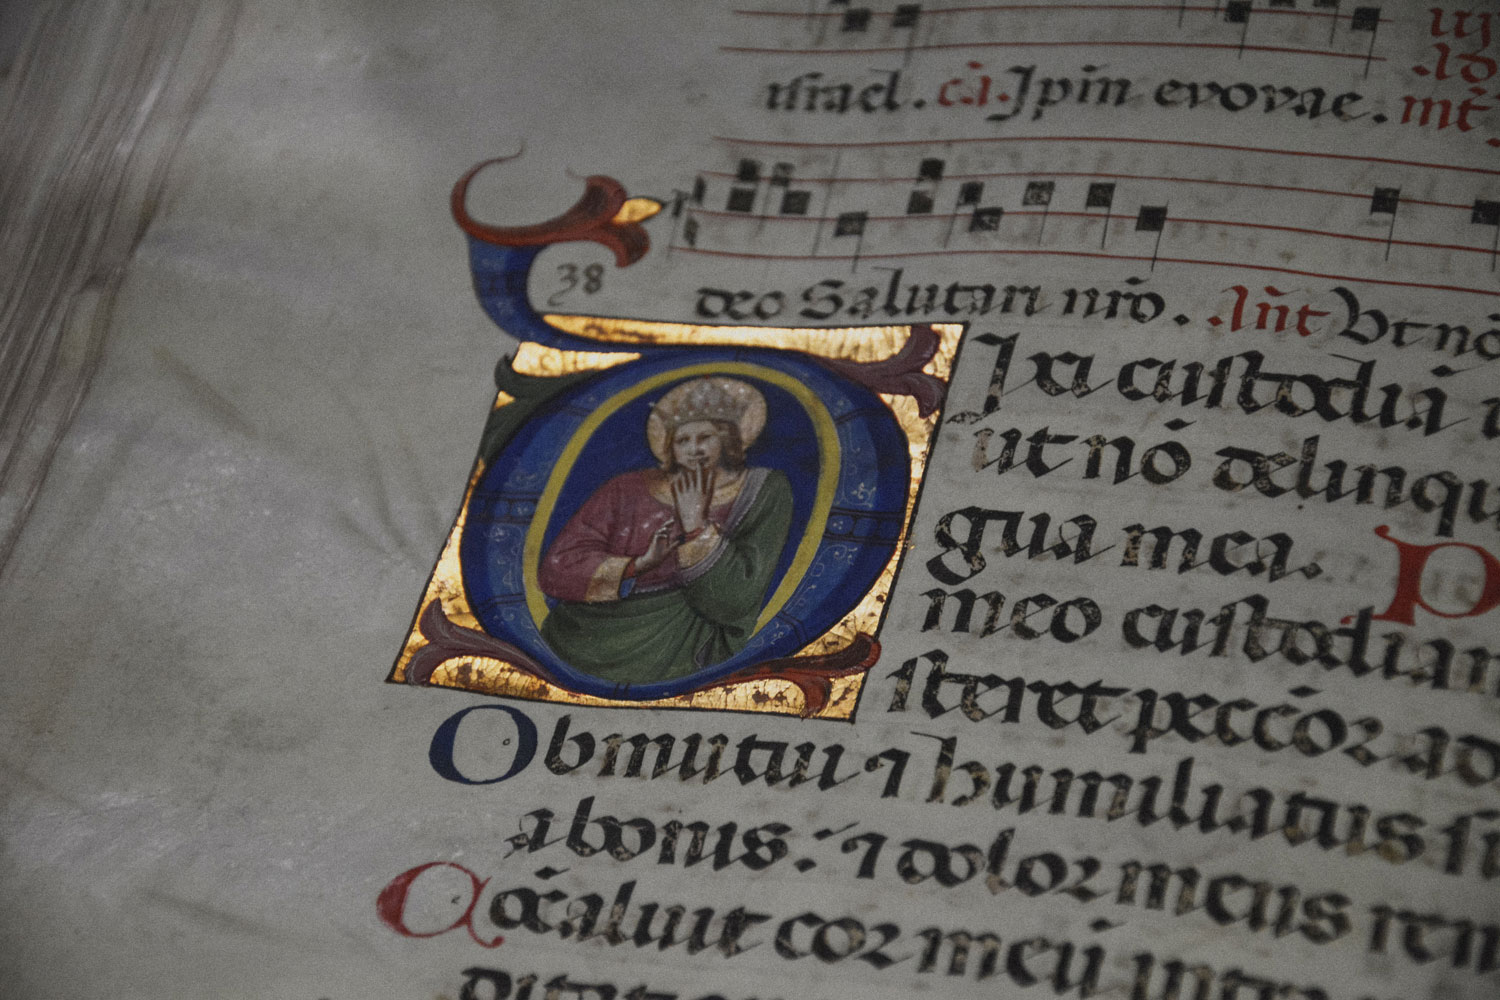 israel. cā. Ipin evovae. mt̄
38
deo Salutari nr̄o. .Ant̄ Ut nō
DIxi custodiā
ut nō delinqu
gua mea. P
meo custodiam
steret peccōr ad
Obmutui ⁊ humiliatus si
a bonis: ⁊ dolor meus ren
Cōcaluit cor meū intra